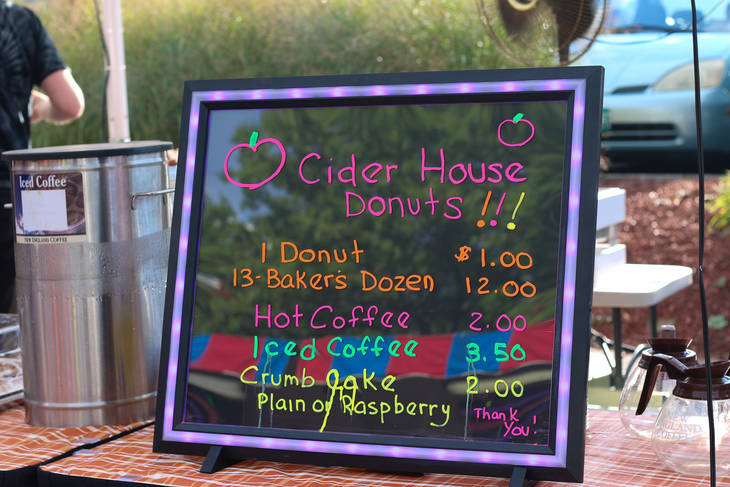 Iced Coffee
NEW ENGLAND COFFEE
Cider House
Donuts !!!
1 Donut $1.00
13-Baker's Dozen 12.00
Hot Coffee 2.00
Iced Coffee 3.50
Crumb Cake 2.00
Plain or Raspberry
Thank
You!
NEW
ENGLAND
COFFEE